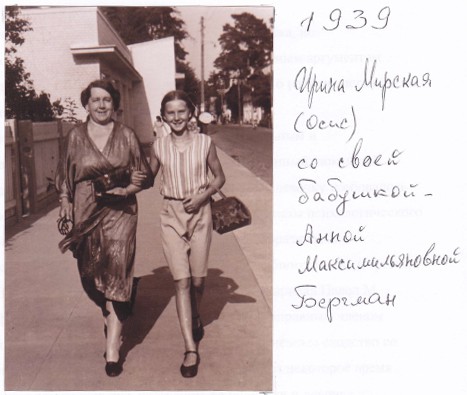 1939
Ирина Мирская
(Осис)
со своей
бабушкой -
Анной
Максимильяновной
Бергман